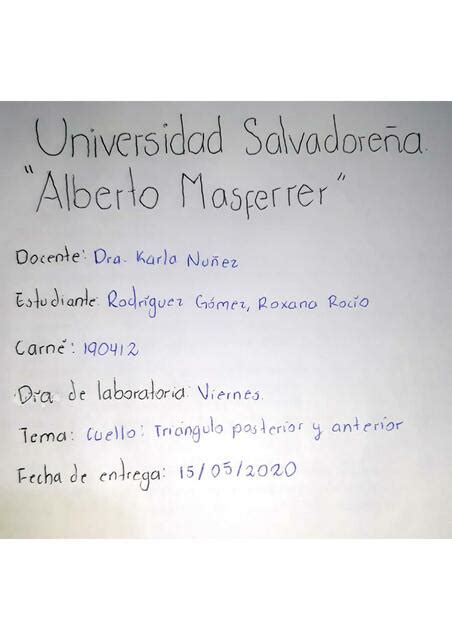 Universidad Salvadoreña.
"Alberto Masferrer"
Docente: Dra. Karla Nuñez
Estudiante: Rodríguez Gómez, Roxana Rocío
Carné: 190412
Día de laboratoria: Viernes.
Tema: Cuello: Triángulo posterior y anterior
Fecha de entrega: 15/05/2020